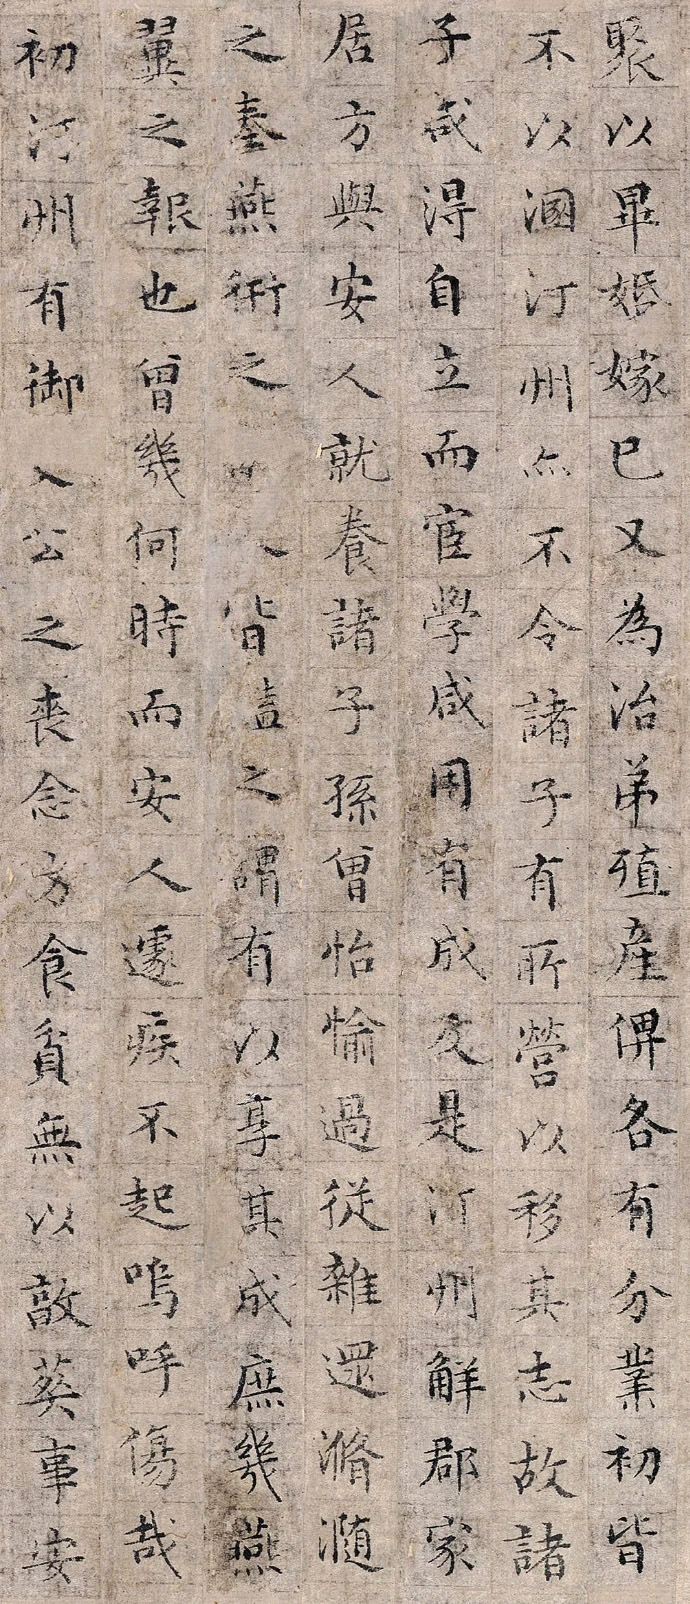 聚以畢婚嫁已又為治弟殖產俾各有分業初皆
不以溷汀州亦不令諸子有所營以移其志故諸
子咸得自立而宦學咸用有成及是汀州解郡家
居方與安人就養諸子孫曾怡愉過從雜遝滫瀡
之奉燕衎之 皆 之謂有以享其成庶幾燕
翼之報也曾幾何時而安人遽疾不起嗚呼傷哉
初汀州有御 公之喪念方食貧無以敵葬事安